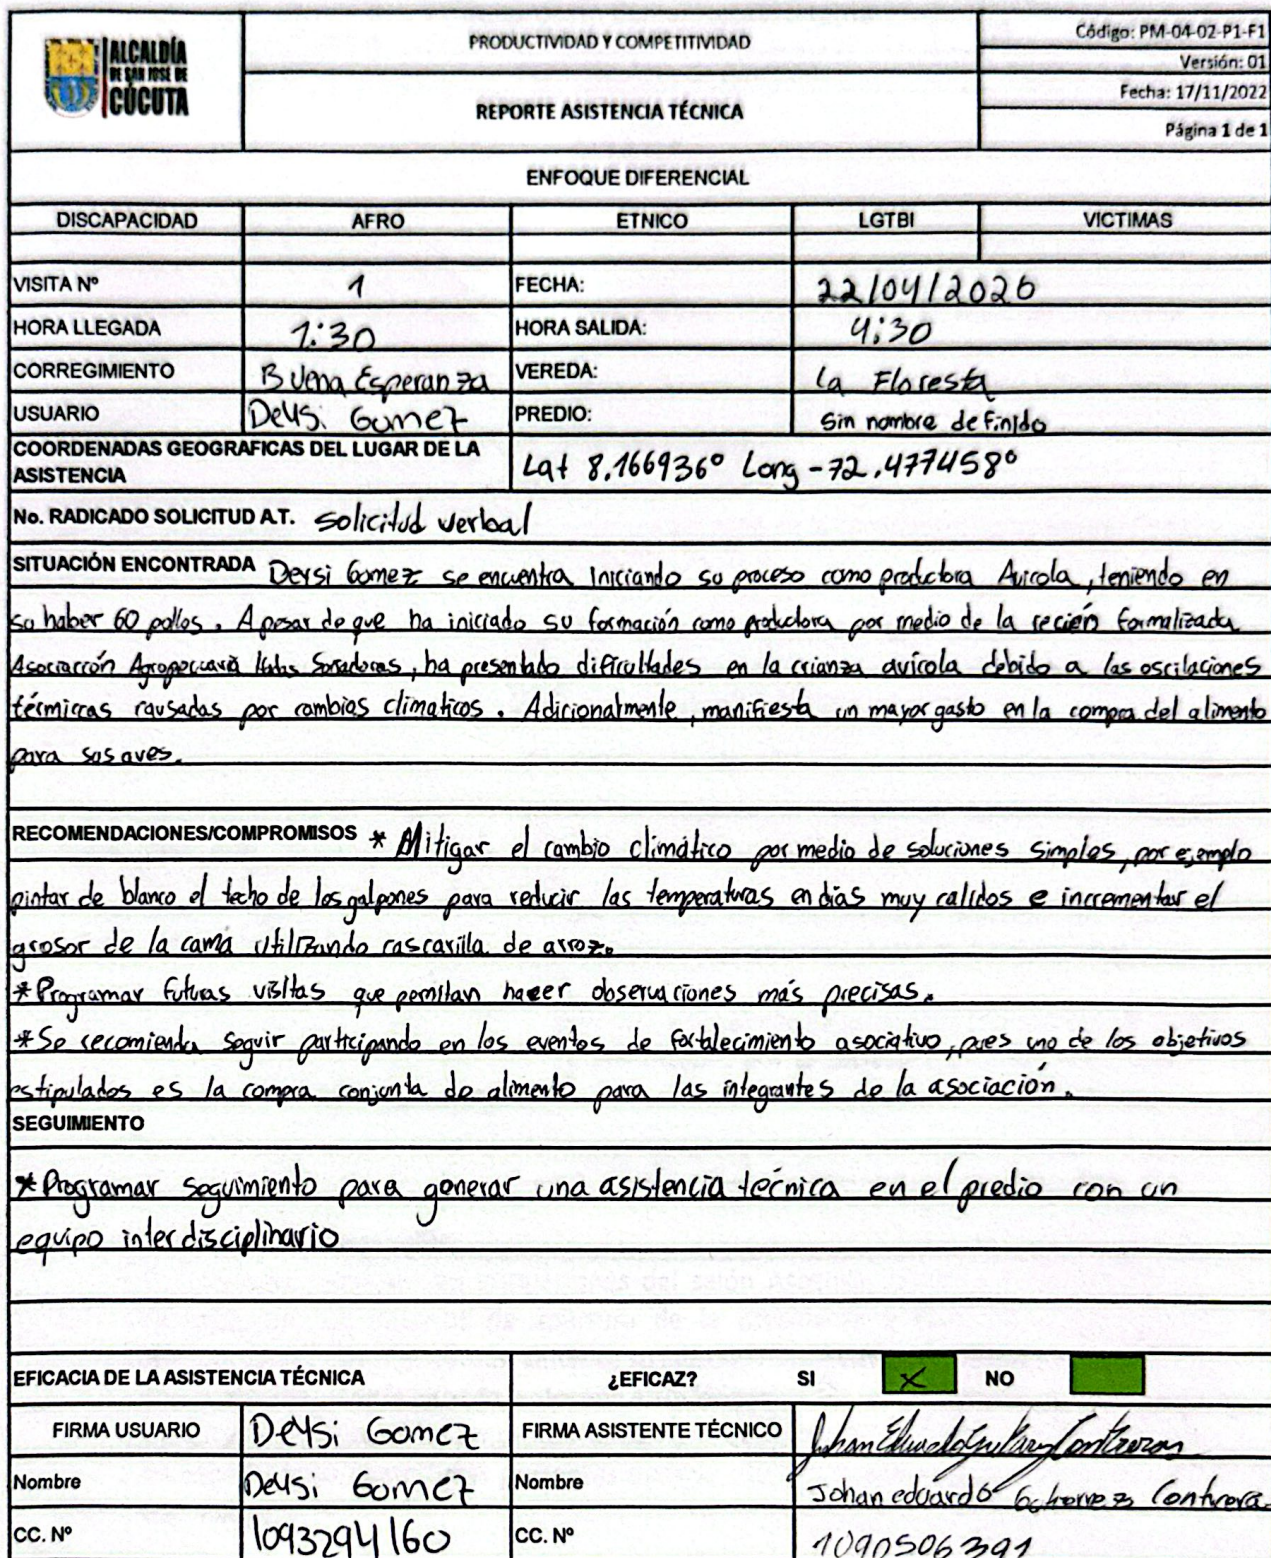 ALCALDÍA
DE SAN JOSÉ DE
CÚCUTA
PRODUCTIVIDAD Y COMPETITIVIDAD
REPORTE ASISTENCIA TÉCNICA
Código: PM-04-02-P1-F1
Versión: 01
Fecha: 17/11/2022
Página 1 de 1
ENFOQUE DIFERENCIAL
DISCAPACIDAD AFRO ETNICO LGTBI VICTIMAS
VISITA Nº 1 FECHA: 22/04/2026
HORA LLEGADA 1:30 HORA SALIDA: 4:30
CORREGIMIENTO Buena Esperanza VEREDA: la Floresta
USUARIO Deysi Gomez PREDIO: Sin nombre definido
COORDENADAS GEOGRAFICAS DEL LUGAR DE LA
ASISTENCIA Lat 8.166936° Long -72.477458°
No. RADICADO SOLICITUD A.T. solicitud verbal
SITUACIÓN ENCONTRADA Deysi Gomez se encuentra iniciando su proceso como productora Avicola, teniendo en
su haber 60 pollos. A pesar de que ha iniciado su formación como productora por medio de la recién formalizada
Asociación Agropecuaria Soñadoras, ha presentado dificultades en la crianza avícola debido a las oscilaciones
térmicas causadas por cambios climaticos. Adicionalmente, manifiesta un mayor gasto en la compra del alimento
para sus aves.
RECOMENDACIONES/COMPROMISOS * Mitigar el cambio climático por medio de soluciones simples, por ejemplo
pintar de blanco el techo de los galpones para reducir las temperaturas en días muy calidos e incrementar el
grosor de la cama utilizando cascarilla de arroz.
* Programar futuras visitas que permitan hacer observaciones más precisas.
* Se recomienda seguir participando en los eventos de fortalecimiento asociativo, pues uno de los objetivos
estipulados es la compra conjunta de alimento para las integrantes de la asociación.
SEGUIMIENTO
* Programar seguimiento para generar una asistencia técnica en el predio con un
equipo interdisciplinario
EFICACIA DE LA ASISTENCIA TÉCNICA ¿EFICAZ? SI X NO
FIRMA USUARIO Deysi Gomez FIRMA ASISTENTE TÉCNICO
Nombre Deysi Gomez Nombre Johan eduardo Contreras
CC. Nº 1093294160 CC. Nº 1090506391